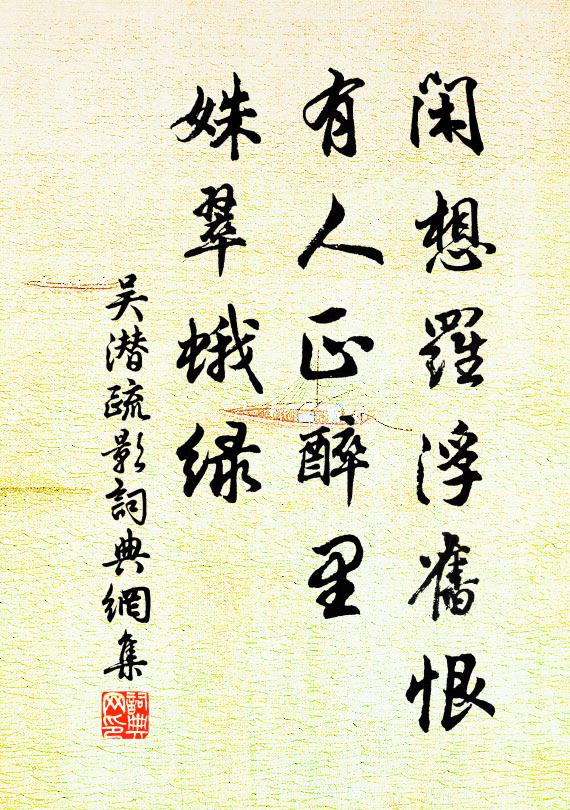 闲想罗浮舊恨
有人正醉里
姝翠蛾绿
吴潜疏影詞典網集
詞典网印